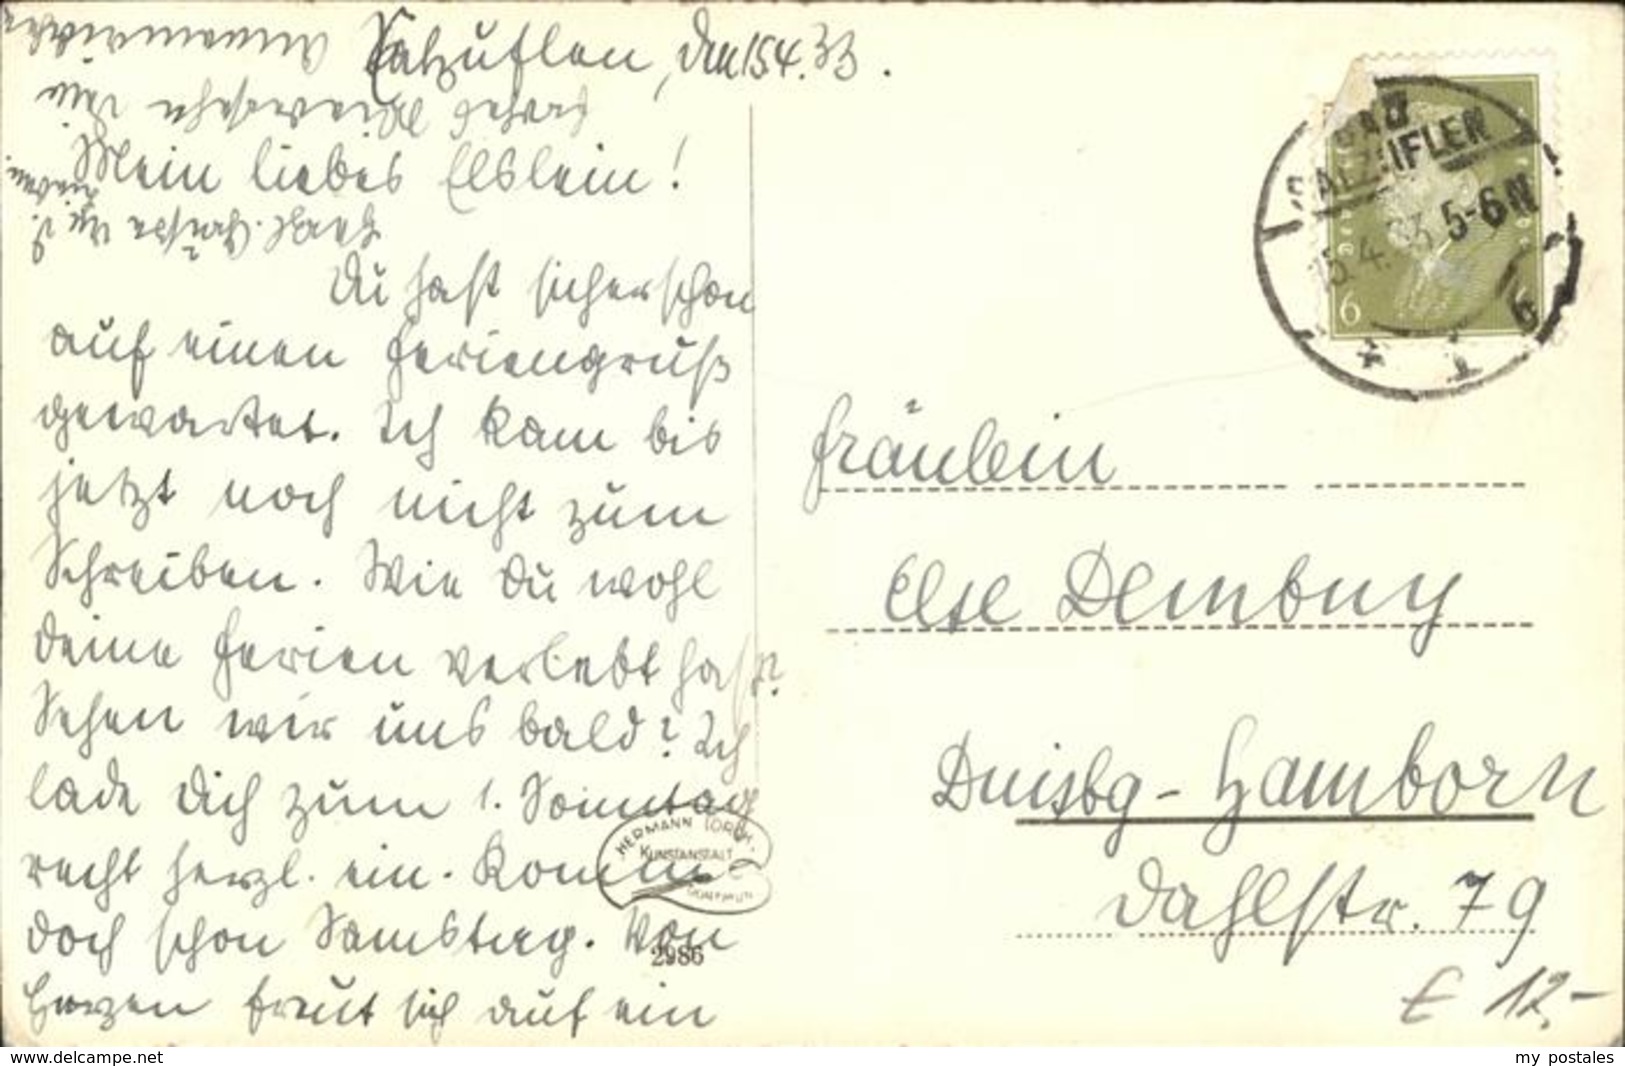 Salzuflen, den 15.4.33.
Mein liebes Elslein!
Du hast sicher schon
auf einen Feriengruß
gewartet. Ich kam bis
jetzt noch nicht zum
Schreiben. Wie Du wohl
deine Ferien verlebt hast?
Sehen wir uns bald? Ich
lade Dich zum 1. Sonntag
recht herzl. ein. Komm
doch schon Samstag. Von
Herzen freut sich auf ein
frohes Wiedersehn Dein
Annemariechen
Herzl. Grüße an
HERMANN LORCH
KUNSTANSTALT
DORTMUND
2986
BAD
SALZUFLEN
15.4.33 5-6N
6 6
Fräulein
Else Dembny
Duisbg-Hamborn
Dahlstr. 79
€ 12,-
www.delcampe.net
my postales